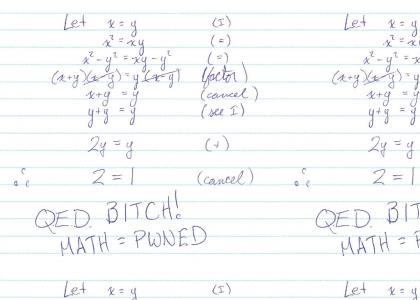 Let x = y (I)
x² = xy (=)
x² - y² = xy - y² (=)
(x+y)(x-y) = y(x-y) (factor)
x+y = y (cancel)
y+y = y (see I)
2y = y (+)
∴ 2 = 1 (cancel)
QED. BITCH!
MATH = PWNED
Let x = y (I)
Let x = y
x² = xy
x² - y² = x
(x+y)(x-y) = y
x+y = y
y+y = y
2y = y
∴ 2 = 1
QED. BIT
MATH = P
Let x = y